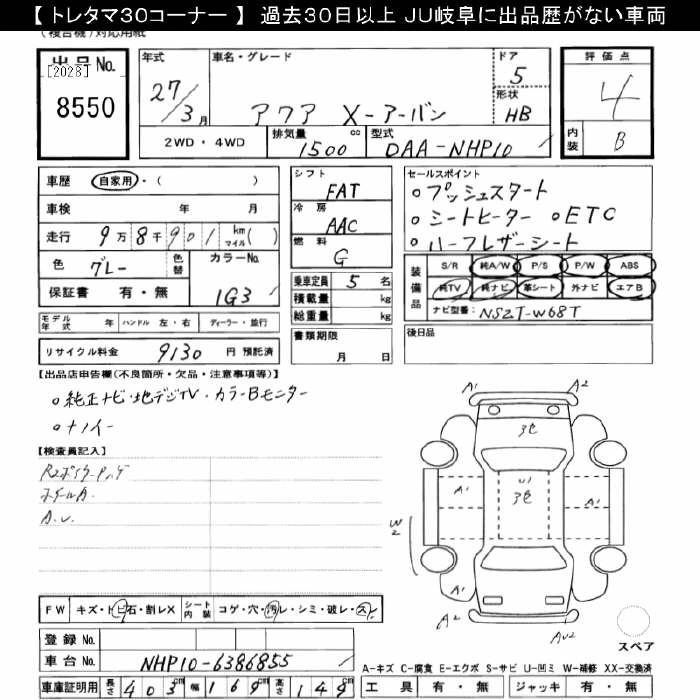 【 トレタマ30コーナー 】 過去30日以上 JU岐阜に出品歴がない車両
(複合機)対応用紙
出品No.
[2028]
8550
年式 27/3月
車名・グレード アクア X-アーバン
ドア 5
形状 HB
2WD・4WD 排気量 1500cc 型式 DAA-NHP10
評価点 4
内装 B
車歴 自家用・( )
車検 年 月
走行 9万8千901 km マイル( )
色 グレー 色替 カラーNo. 1G3
保証書 有・無
モデル年式 年 ハンドル 左・右 ディーラー・並行
リサイクル料金 9130 円 預託済
シフト FAT
冷房 AAC
燃料 G
乗車定員 5 名
積載量 kg
総重量 kg
書類期限 月 日
セールスポイント
○プッシュスタート
○シートヒーター ○ETC
○ハーフレザーシート
装備品
S/R 純A/W P/S P/W ABS
純TV 純ナビ 革シート 外ナビ エアB
ナビ型番: NSZT-W68T
後日品
【出品店申告欄(不良箇所・欠品・注意事項等)】
○純正ナビ・地デジTV・カラーBモニター
○ナノイー
【検査員記入】
ホイールA.
A.U.
A1 A2
3色
U1
3色
A1 A1
W2
A2 AU2
スペア
FW キズ・トビ石・割レX シート内装 コゲ・穴・汚レ・シミ・破レ・スレ
登録 No.
車台 No. NHP10-6386855
車庫証明用 長さ 403 幅 169 高さ 144
A-キズ C-腐食 E-エクボ S-サビ U-凹ミ W-補修 XX-交換済
工具 有・無 ジャッキ 有・無